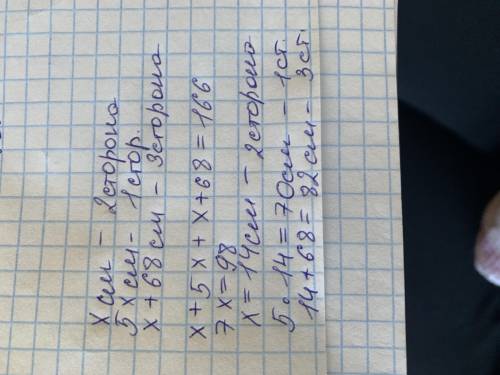 х см – 2сторона
5х см – 1стор.
х+68 см – 3сторона
х+5х+х+68=166
7х=98
х=14см – 2сторона
5·14=70см – 1ст.
14+68=82см – 3ст.